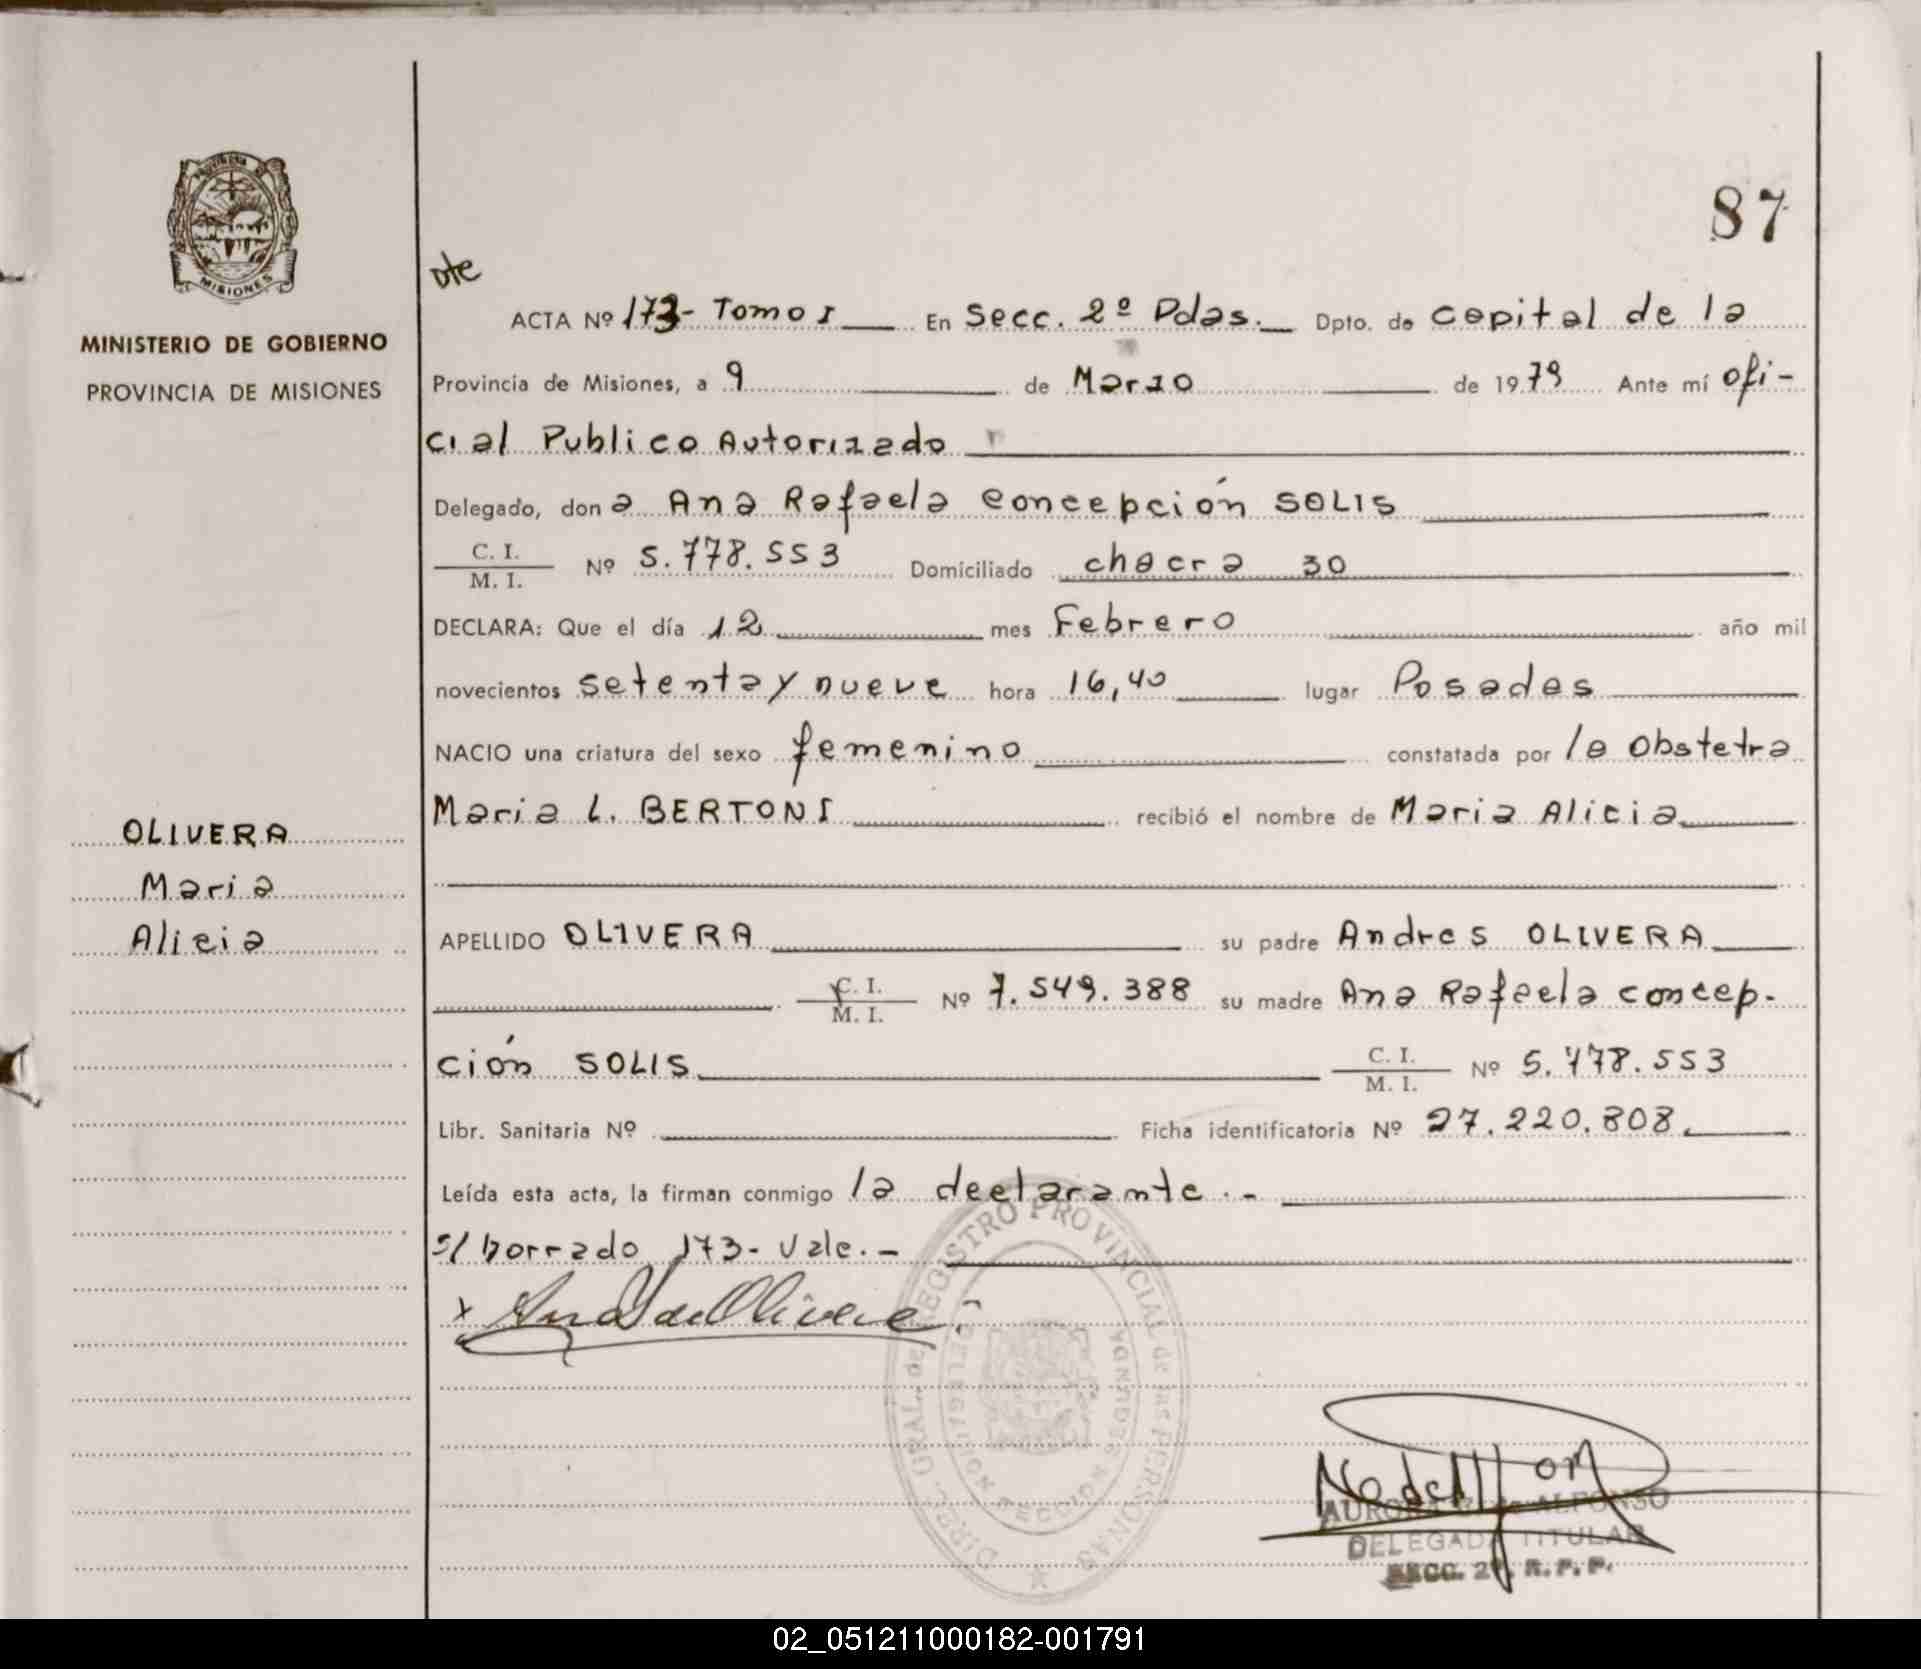 87
MINISTERIO DE GOBIERNO
PROVINCIA DE MISIONES
MISIONES
ACTA Nº 173- Tomo I En Secc. 2º Pdas. Dpto. de Capital de la
Provincia de Misiones, a 9 de Marzo de 1979 Ante mí ofi-
cial Publico Autorizado
Delegado, don a Ana Rafaela Concepción SOLIS
C. I.
M. I. Nº 5.778.553 Domiciliado chacra 30
DECLARA: Que el día 12 mes Febrero año mil
novecientos setenta y nueve hora 16,40 lugar Posadas
NACIO una criatura del sexo femenino constatada por la Obstetra
Maria L. BERTONI recibió el nombre de Maria Alicia
OLIVERA
Maria
Alicia
APELLIDO OLIVERA su padre Andres OLIVERA
C. I.
M. I. Nº 7.549.388 su madre Ana Rafaela Concep-
ción SOLIS C. I.
M. I. Nº 5.778.553
Libr. Sanitaria Nº Ficha identificatoria Nº 27.220.808.
Leída esta acta, la firman conmigo la declarante.-
s/borrado 173- Vale.-
DIREC. GRAL. de REGISTRO PROVINCIAL de las PERSONAS
DELEGACION SECCION SEGUNDA
ALFONSO
DELEGADA TITULAR
SECC. 2ª. R. P. P.
02_051211000182-001791